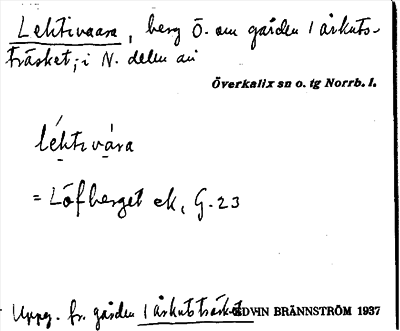 Lehtivaara, berg Ö. om gården 1 årkuts-
träsket; i N. delen av
Överkalix sn o. tg Norrb. l.
léhtivàra
= Löfberget ek, G. 23
Uppg. fr. gården 1 årkutsträsket EDVIN BRÄNNSTRÖM 1937